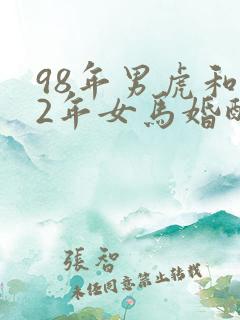 98年男虎和
2年女馬婚配
張智
未经同意禁止转载